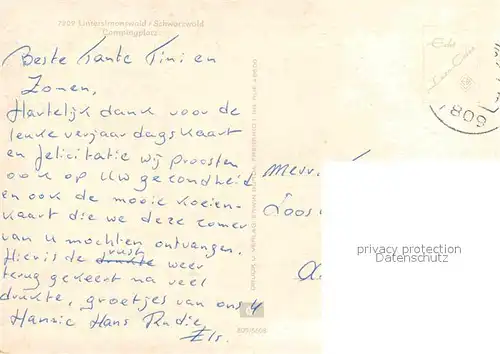 7829 Unterbrennwald / Schwarzwald
Campingplatz
Beste Tante Tini en
Zonen,
Hartelijk dank voor de
leuke verjaardagskaart
en felicitatie wij proosten
ook op Uw gezondheid
en ook de mooie koeien-
kaart die we deze zomer
van u mochten ontvangen.
Hier is de rust weer
terug gekeerd na veel
drukte, groetjes van ons 4
Hannie Hans Rudie
Els.
Mevr.
Loos
Echt
809
privacy protection
Datenschutz